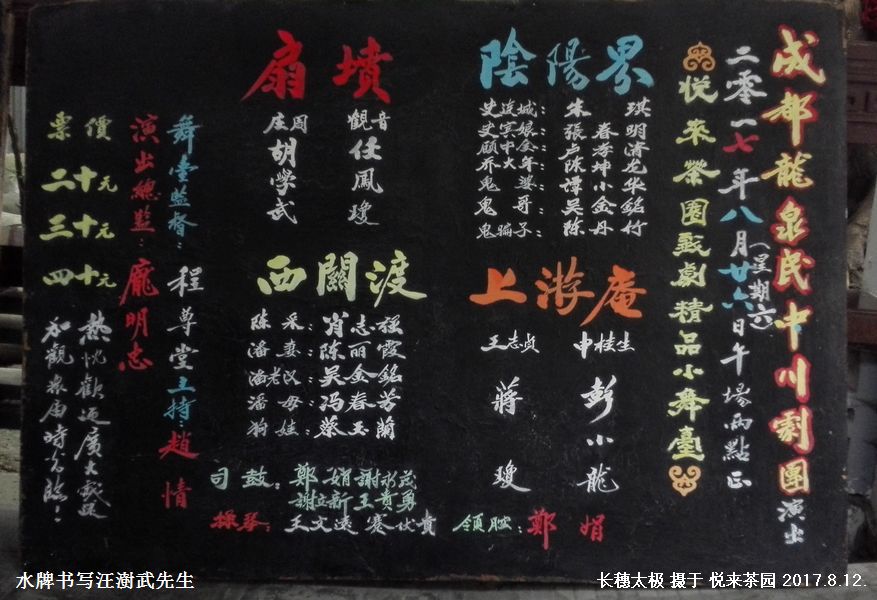 成都龍泉民中川劇團演出
二零一七年八月廿六日午場兩點正
(星期六)
悅來茶園戲劇精品小舞臺
陰陽界
史連城：朱琪
史賓娘：張春明
顾中金：卢孝濟
乔大年：陈坤龙
鬼婆：譚小华
鬼哥：吴金銘
鬼子：陈丹竹
上游庵
王志貞 蔣瓊
申桂生 彭小龍
扇墳
觀音 任鳳瓊
庄周 胡學武
西關渡
陈采：肖志强
潘妻：陈丽霞
潘老汉：吴金銘
潘母：冯春芳
狗娃：蔡玉蘭
司鼓：鄭娟 謝水茂
謝立新 王貴勇
操琴：王文遠 賽代貴 領腔：鄭娟
舞臺監督：程尊堂 主持：趙情
演出總監：龐明忠
票價
二十元
三十元
四十元
熱忱歡迎廣大戲迷
和觀眾届時光臨！
水牌书写汪澍武先生
长穗太极 摄于 悦来茶园 2017.8.12.